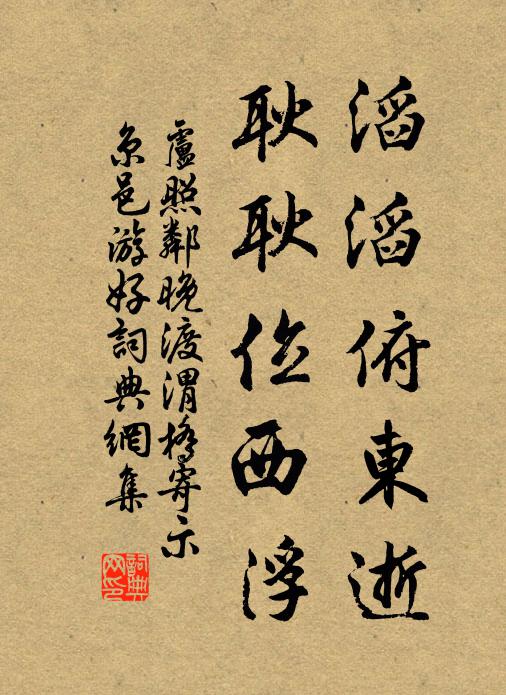 滔滔俯東逝
耿耿位西浮
盧照鄰晚渡渭橋寄示
京邑游好詞典網集
詞典
网印